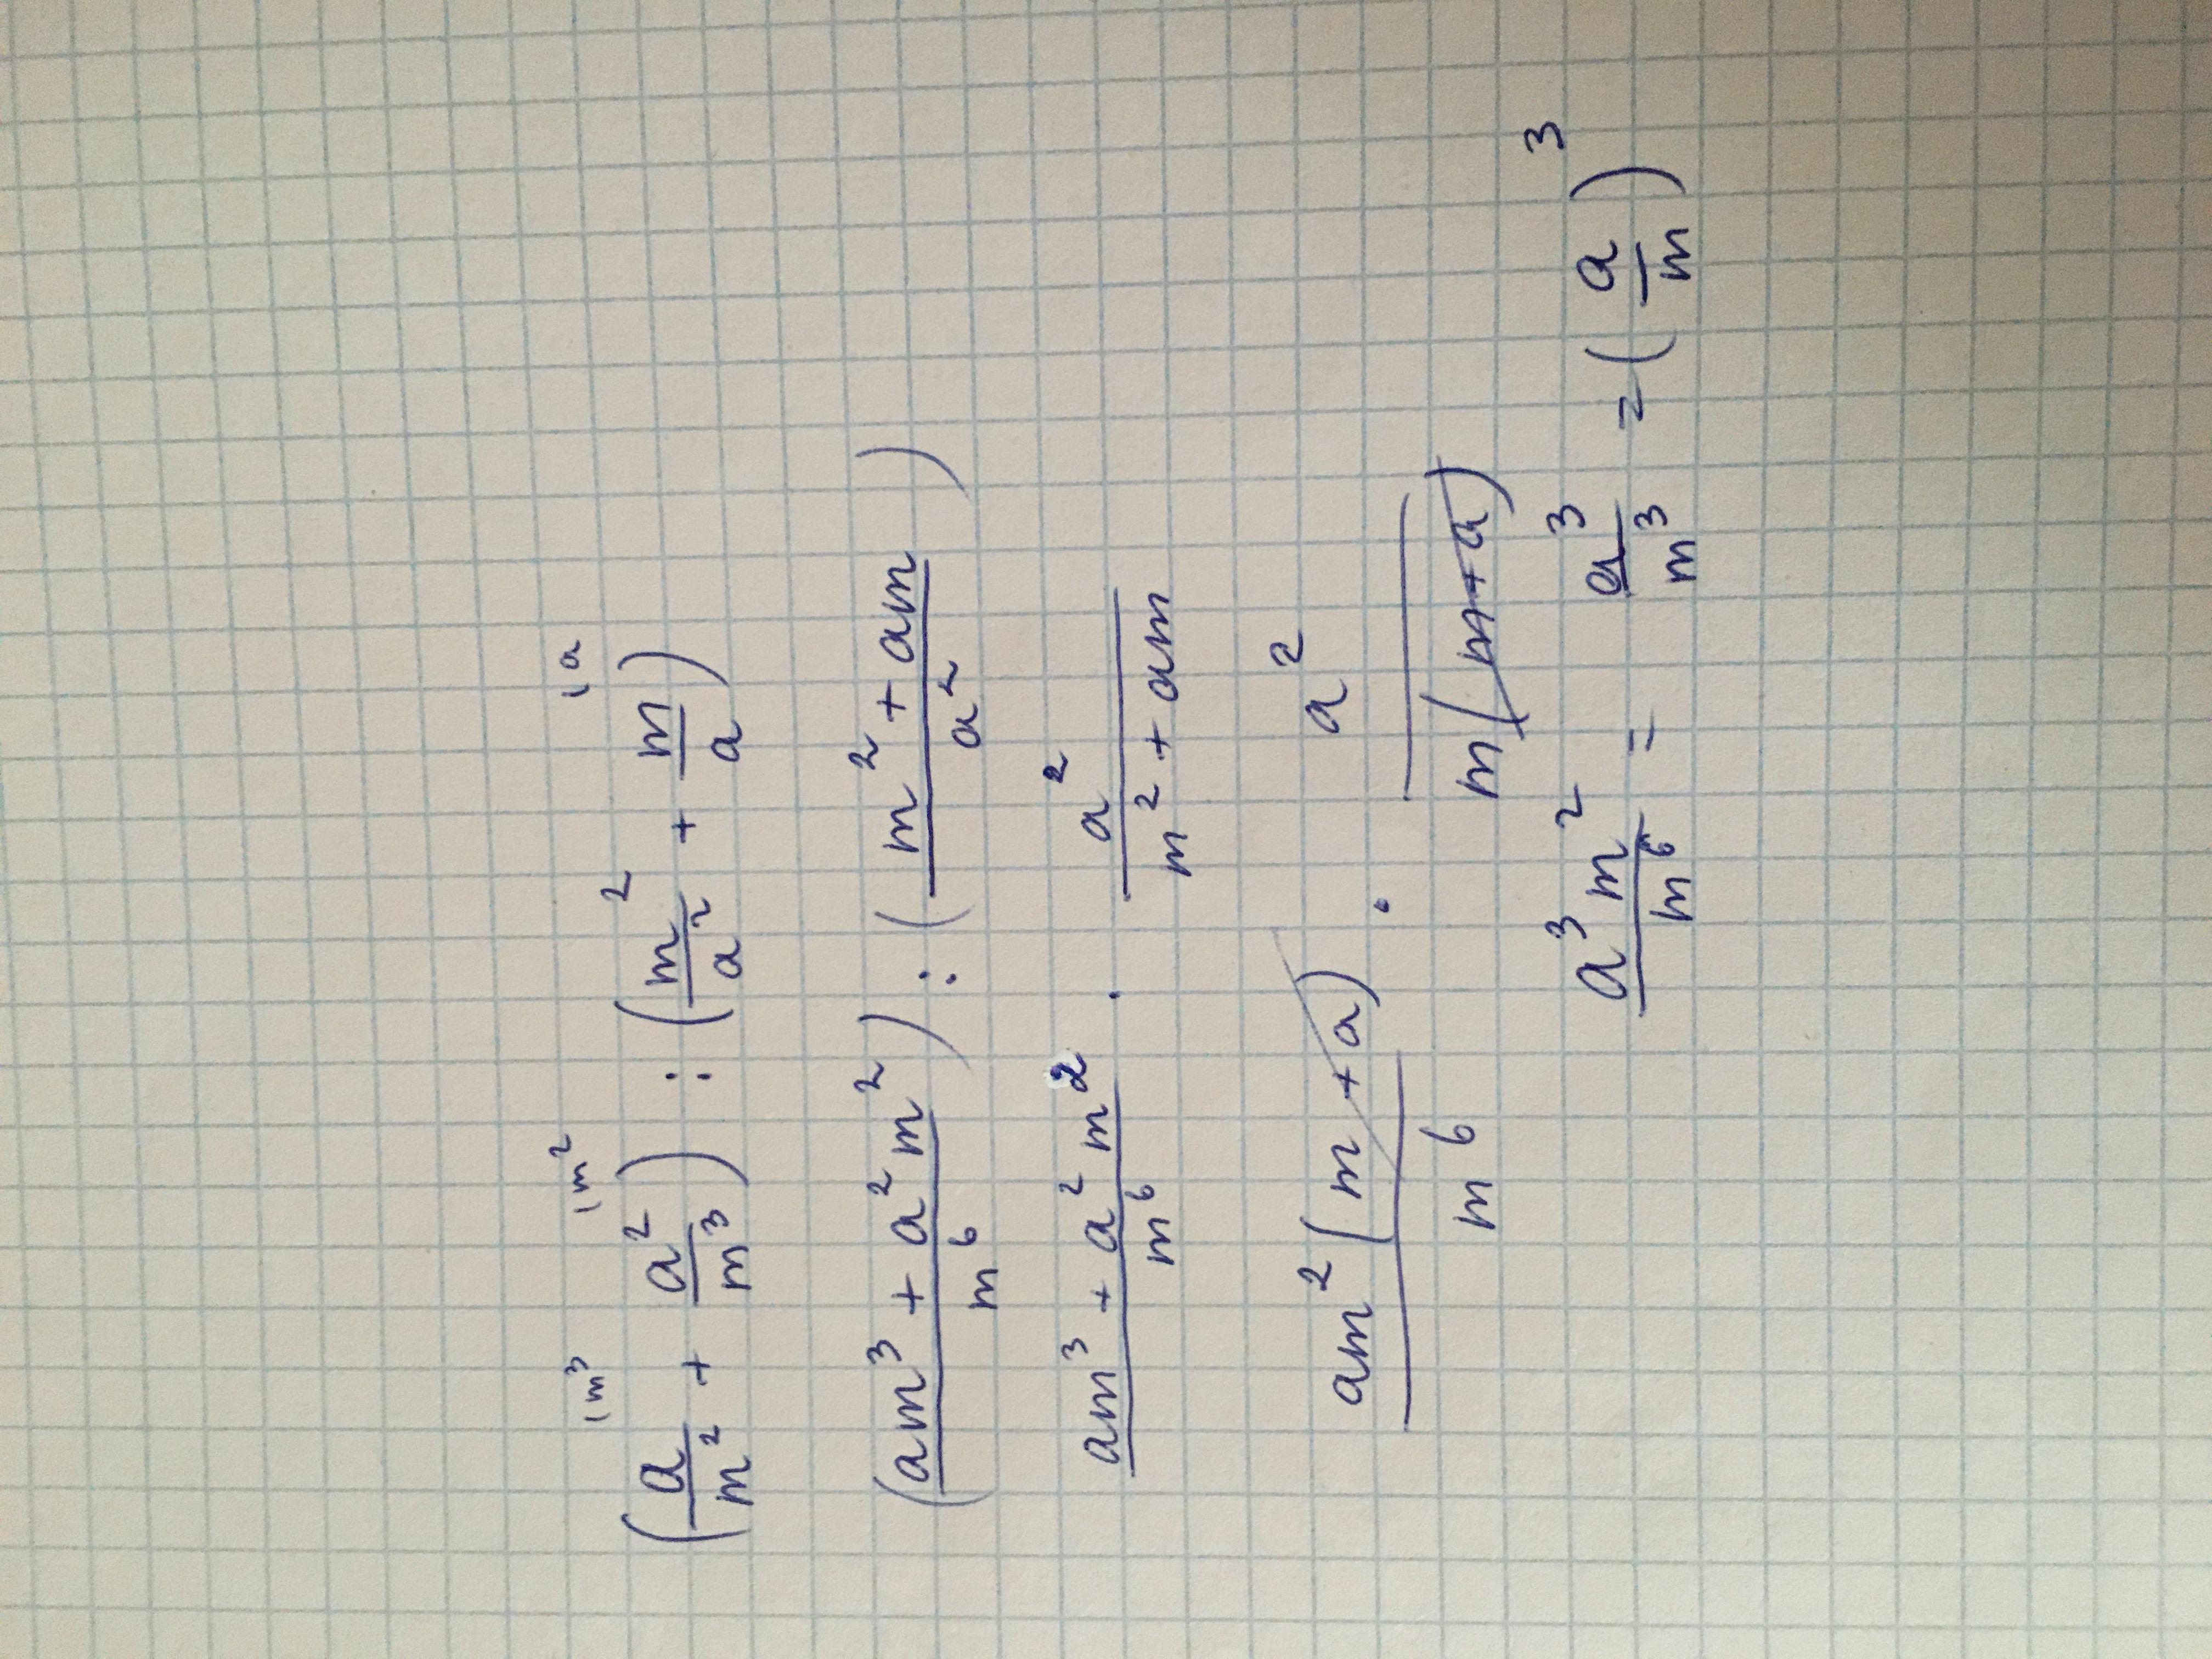 (a/m² + a²/m³) : (m²/a² + m/a) \m³ \m² \a
((am³ + a²m²)/m⁶) : ((m² + am)/a²)
(am³ + a²m²)/m⁶ · a²/(m² + am)
am²(m + a)/m⁶ · a²/m(m+a)
a³m²/m⁶ = a³/m³ = (a/m)³